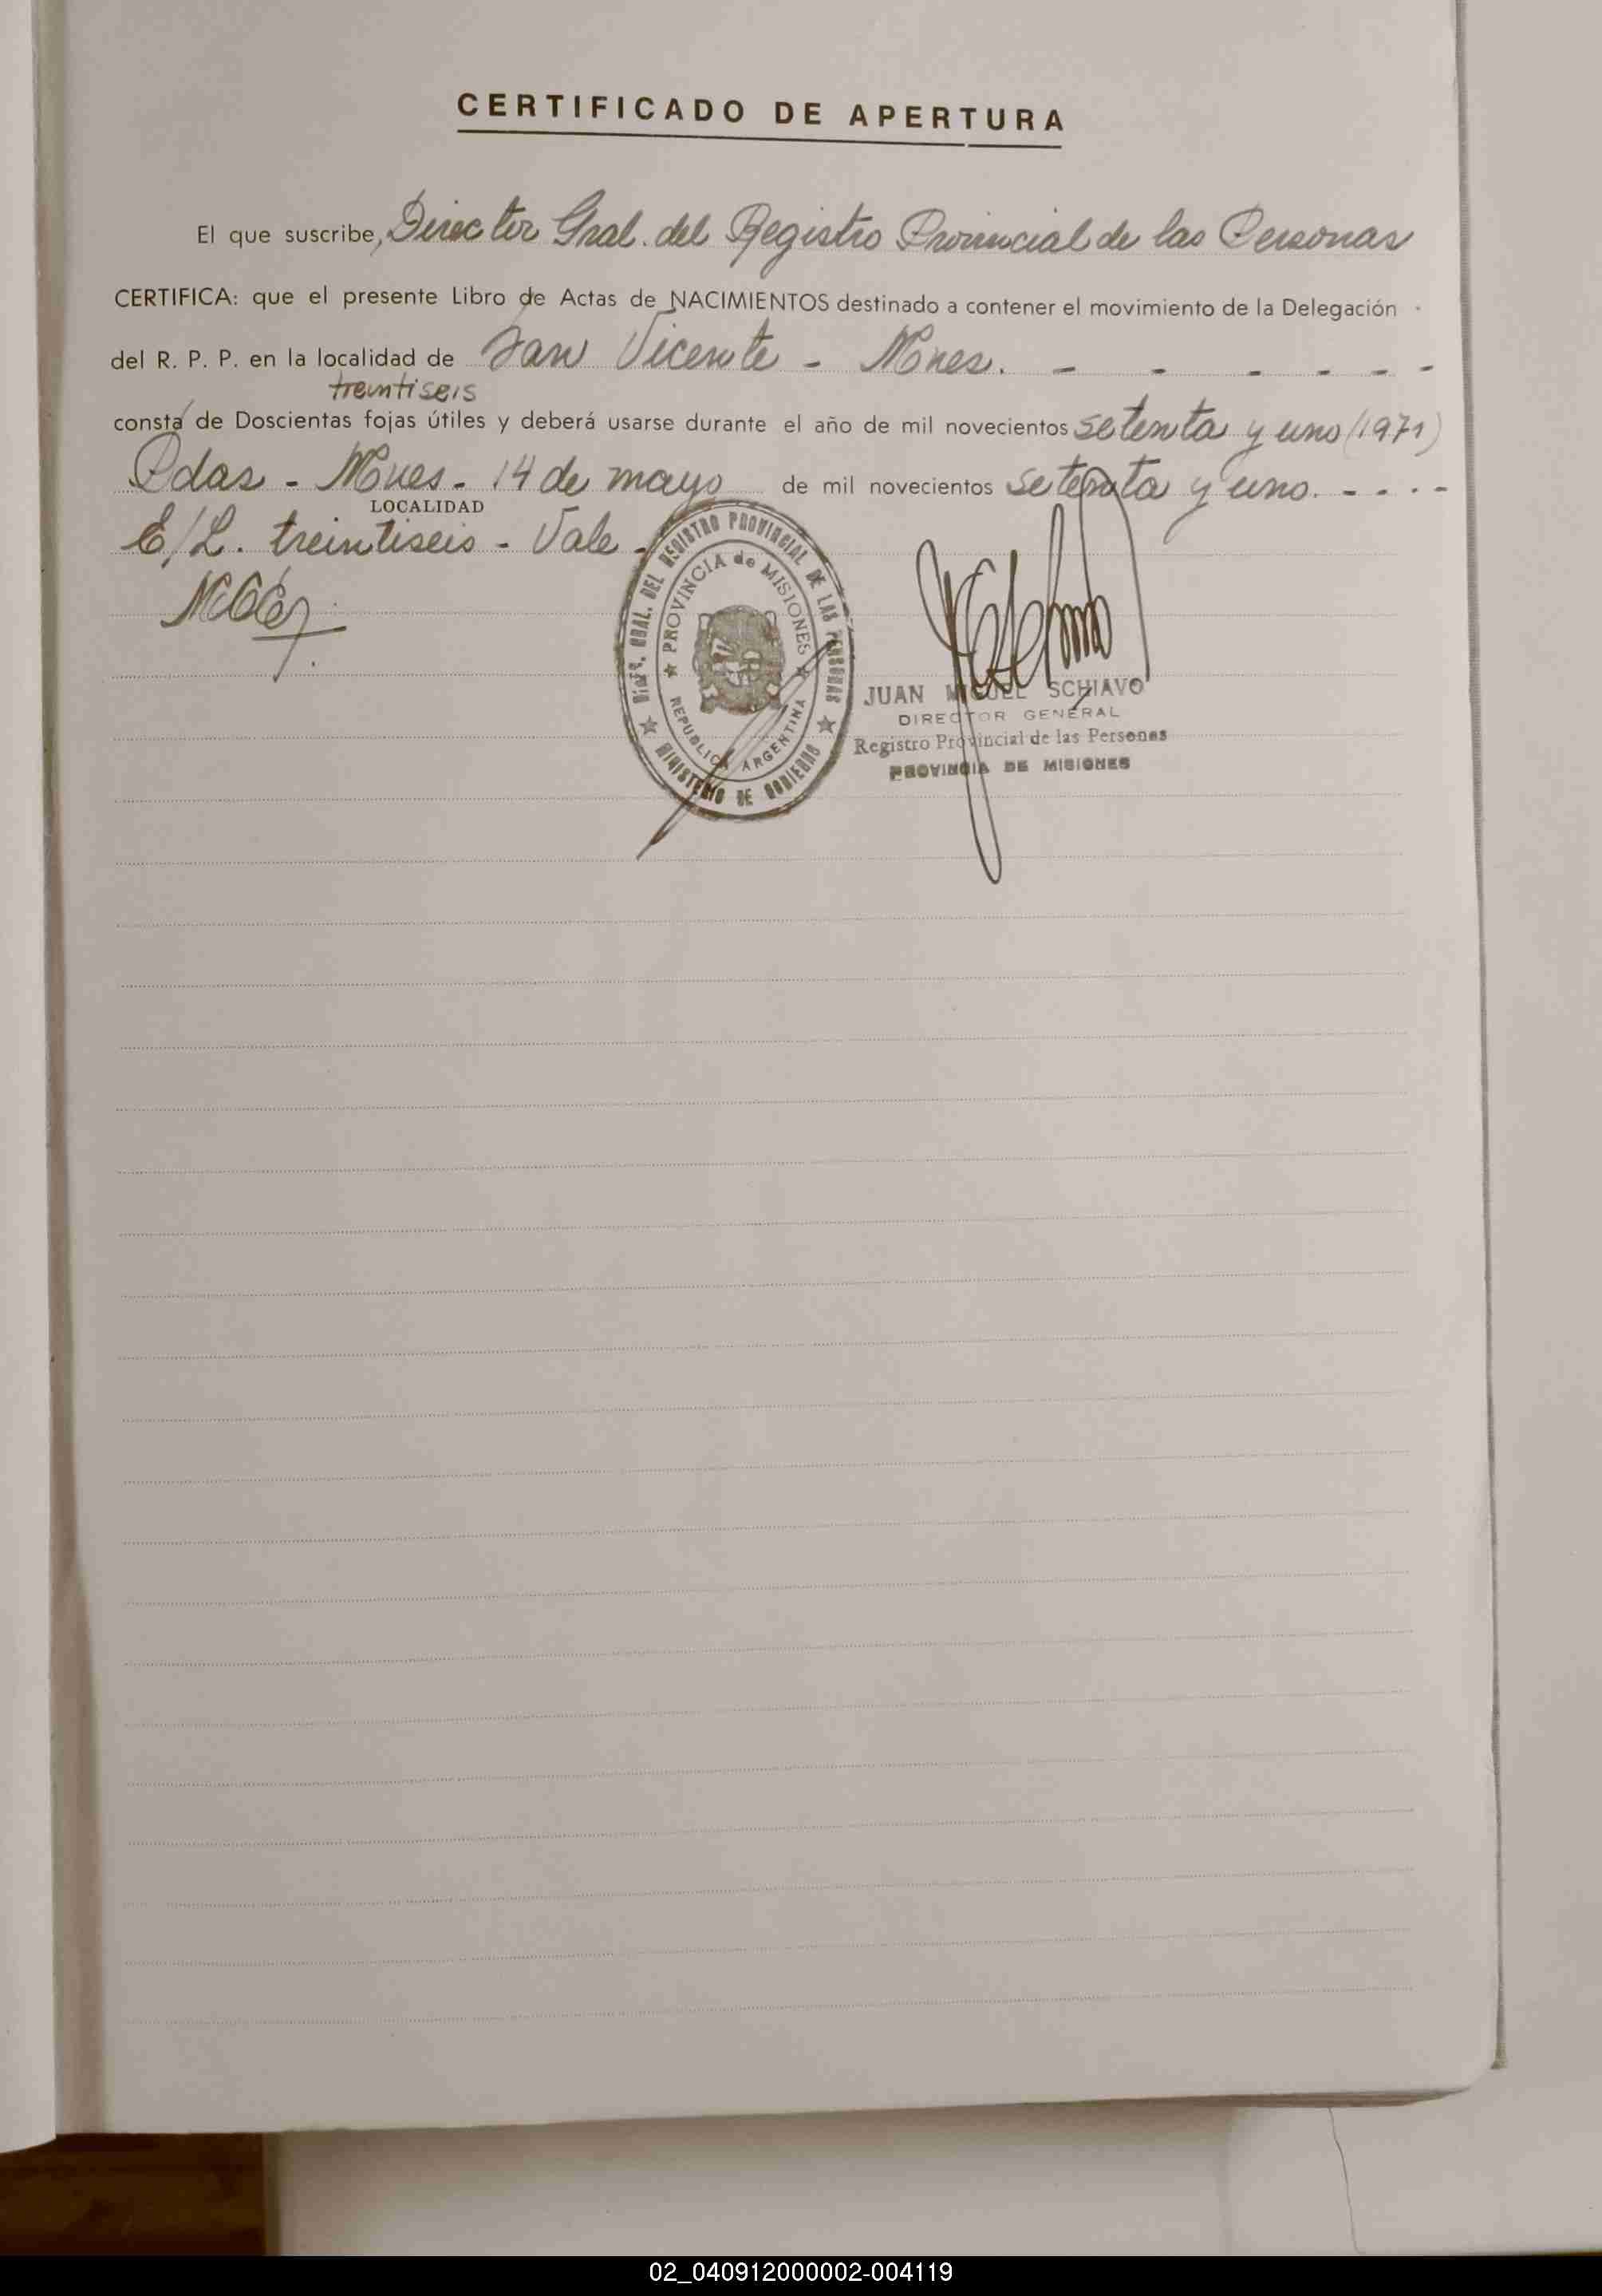 CERTIFICADO DE APERTURA
El que suscribe, Director Gral. del Registro Provincial de las Personas
CERTIFICA: que el presente Libro de Actas de NACIMIENTOS destinado a contener el movimiento de la Delegación
del R. P. P. en la localidad de San Vicente - Mnes. - - - - - -
treintiseis
consta de Doscientas fojas útiles y deberá usarse durante el año de mil novecientos setenta y uno (1971)
Pdas - Mnes - 14 de mayo de mil novecientos setenta y uno. - - - -
LOCALIDAD
E/L. treintiseis - Vale -
GRAL. DEL REGISTRO PROVINCIAL DE LAS PERSONAS
PROVINCIA de MISIONES
REPUBLICA ARGENTINA
MINISTERIO DE GOBIERNO
JUAN MIGUEL SCHIAVO
DIRECTOR GENERAL
Registro Provincial de las Personas
PROVINCIA DE MISIONES
02_040912000002-004119